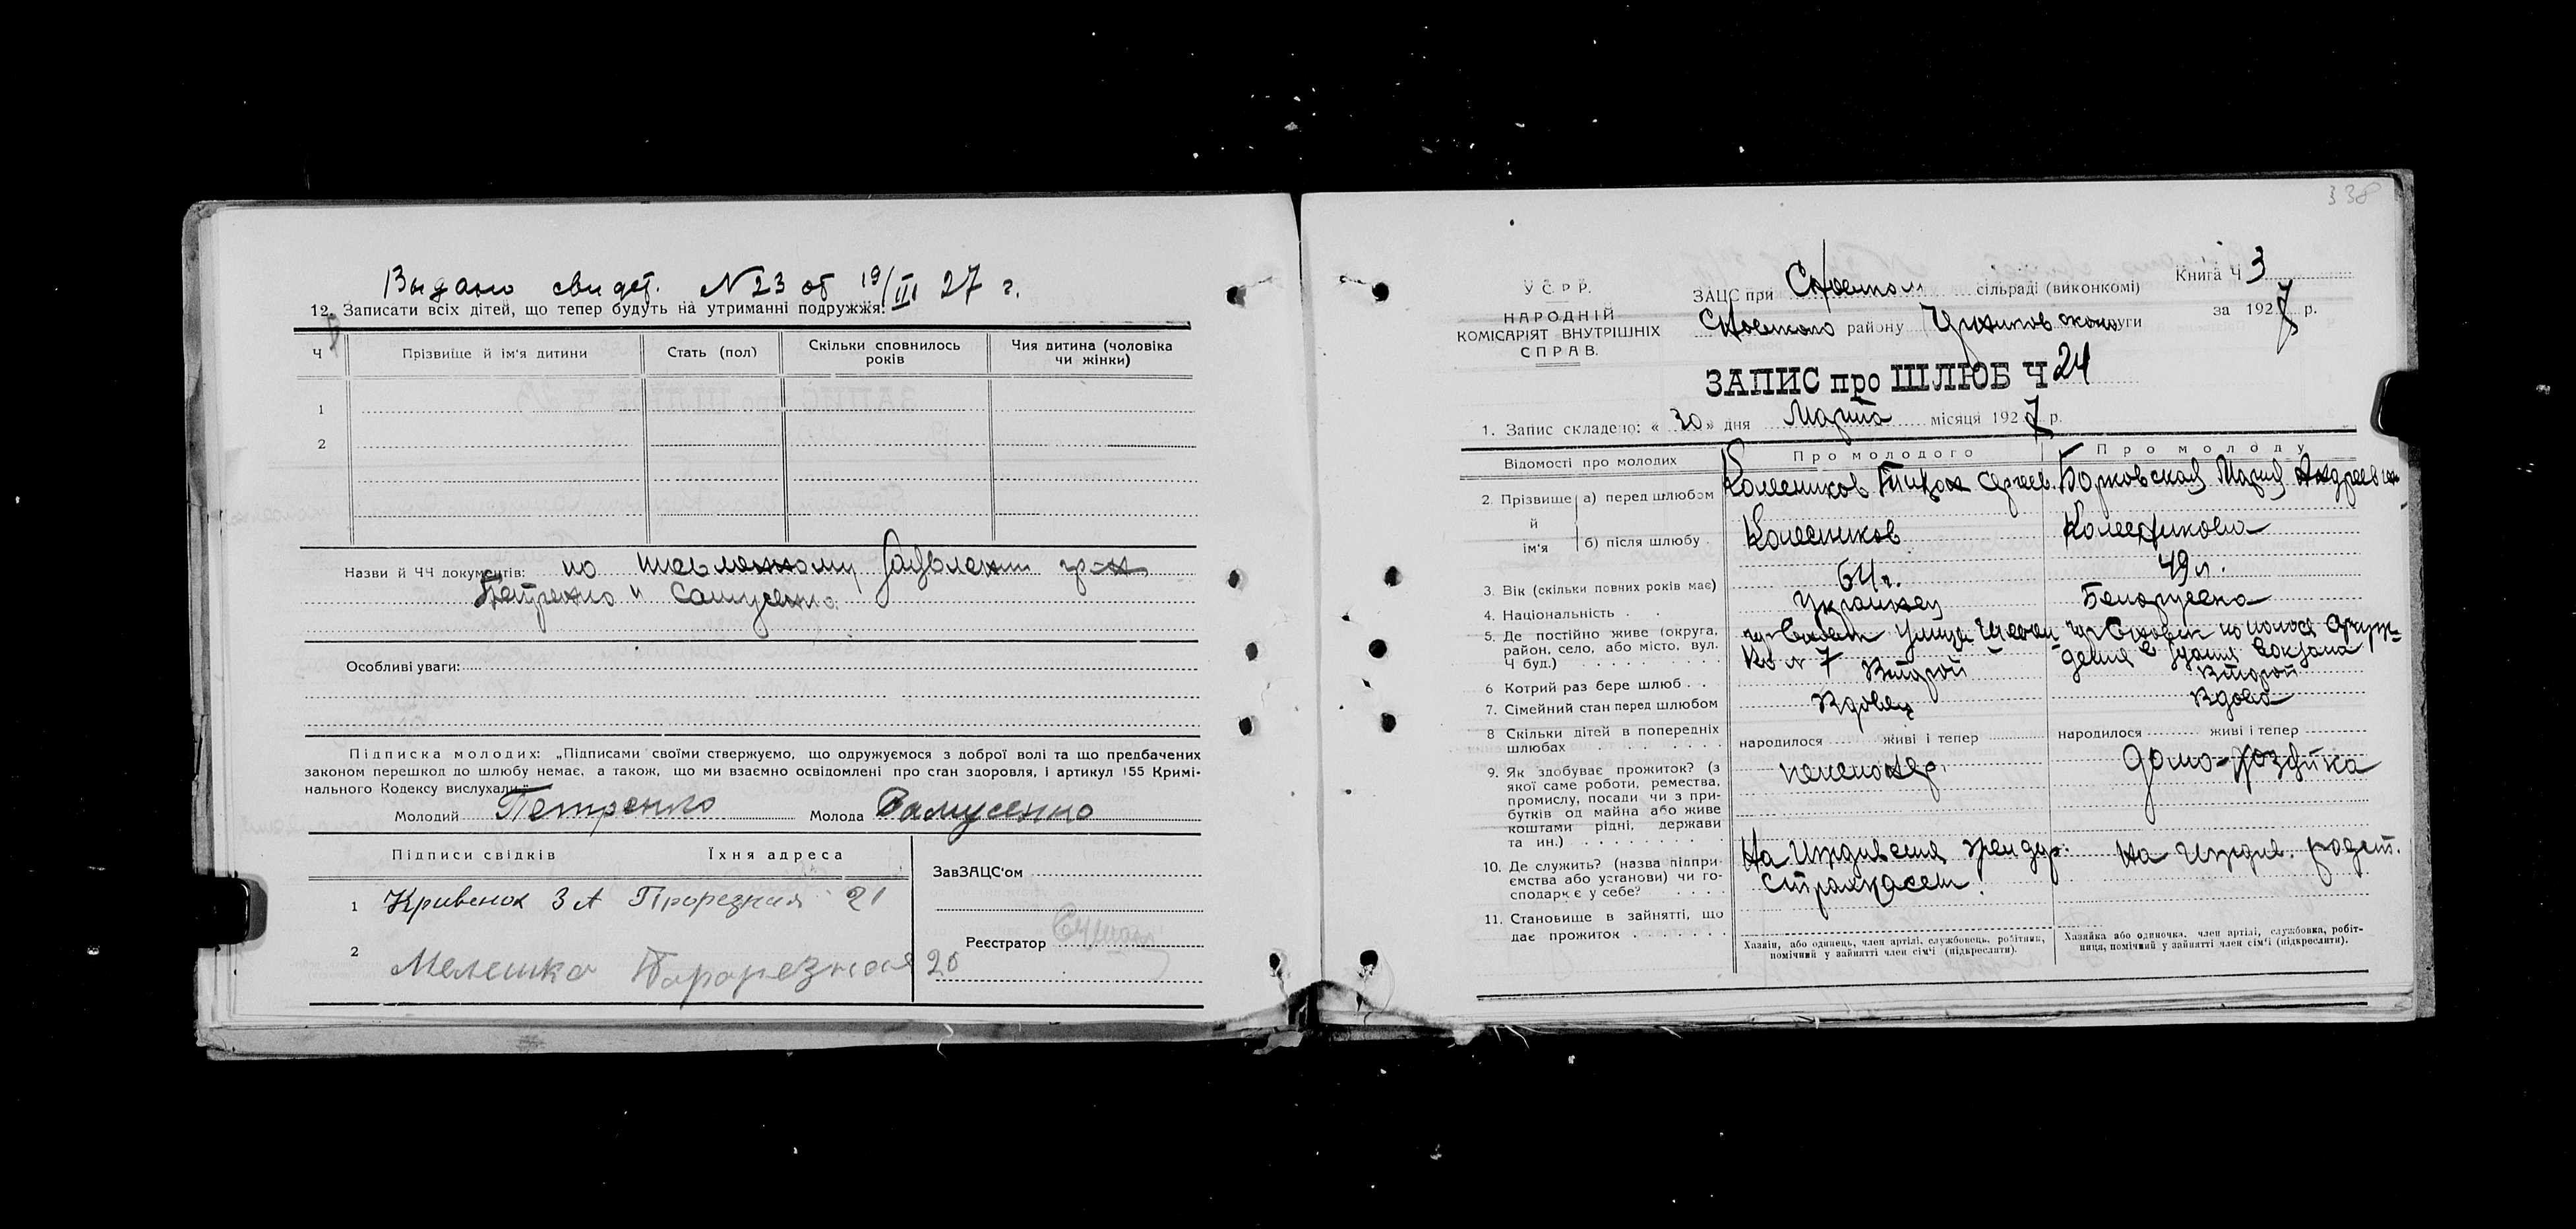 Выдано свидет. N 23 от 19/III 27 г.
12. Записати всіх дітей, що тепер будуть на утриманні подружжя:
Ч
Прізвище й ім'я дитини
Стать (пол)
Скільки сповнилось років
Чия дитина (чоловіка чи жінки)
1
2
Назви й ЧЧ документів: по заявлению гр-н
Петренко и Самусенко
Особливі уваги:
Підписка молодих: „Підписами своїми ствержуємо, що одружуємося з доброї волі та що предбачених
законом перешкод до шлюбу немає, а також, що ми взаємно освідомлені про стан здоровля, і артикул 155 Кримі-
нального Кодексу вислухали."
Молодий Петренко Молода Самусенко
Підписи свідків Їхня адреса
1 Кривенок З А Прорезная 21
2 Мелешко Прорезная 20
ЗавЗАЦС'ом
Реєстратор
338
У С Р Р.
НАРОДНІЙ
КОМІСАРІЯТ ВНУТРІШНІХ
СПРАВ.
ЗАЦС при Сновском сільраді (виконкомі)
Книга Ч 3
Сновского району округи
за 1927 р.
ЗАПИС про ШЛЮБ Ч 24
1. Запис складено: « 30 » дня Марта місяця 1927 р.
Відомості про молодих
Про молодого
Про молоду
2. Прізвище й ім'я
а) перед шлюбом
Колесников Тихон Сергеев.
Борковская Мария Андреевна
б) після шлюбу
Колесников
Колесникова
3. Вік (скільки повних років має)
64 г.
49 л.
4. Національність
Украинец
Белоруска
5. Де постійно живе (округа,
район, село, або місто, вул.
Ч буд.)
гор Сновск улица
N 7
гор Сновск по полосе отчуж-
дения в здании вокзала
6 Котрий раз бере шлюб
Второй
Второй
7. Сімейний стан перед шлюбом
Вдовец
Вдова
8 Скільки дітей в попередніх
шлюбах
народилося живі і тепер
народилося живі і тепер
9. Як здобуває прожиток? (з
якої саме роботи, ремества,
промислу, посади чи з при-
бутків од майна або живе
коштами рідні, держави
та ин.)
пенсионер.
домо-хозяйка
10. Де служить? (назва підпри-
ємства або установи) чи го-
сподарює у себе?
На Иждивении
страхкассы.
На иждив.
11. Становище в зайнятті, що
дає прожиток
Хазяін, або одинець, член артілі, службовець, робітник,
помічний у зайнятті член сім'ї (підкреслити).
Хазяйка або одиночка, член артілі, службовка, робіт-
ниця, помічний у зайнятті член сім'ї (підкреслити).